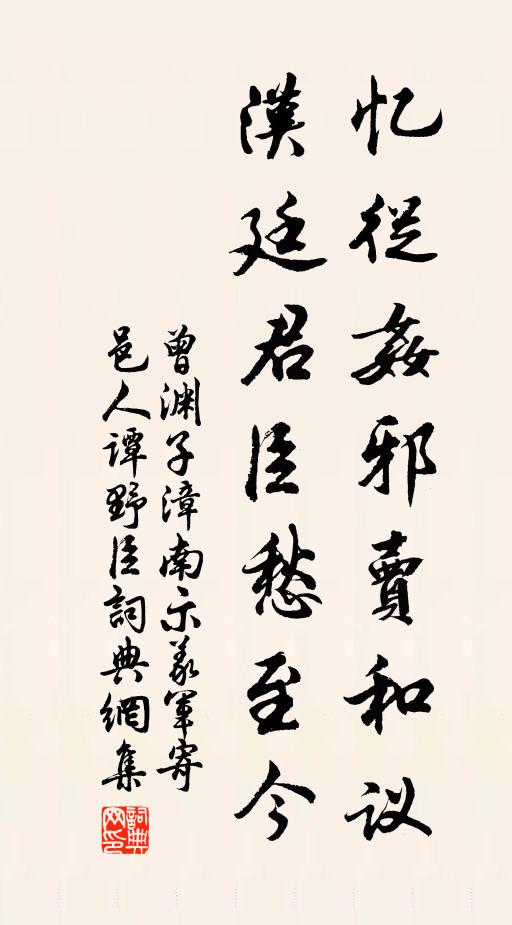 忆從姦邪賣和议
漢廷君臣愁至今
曾渊子漳南示義軍寄
邑人谭野臣詞典網集
詞典网印